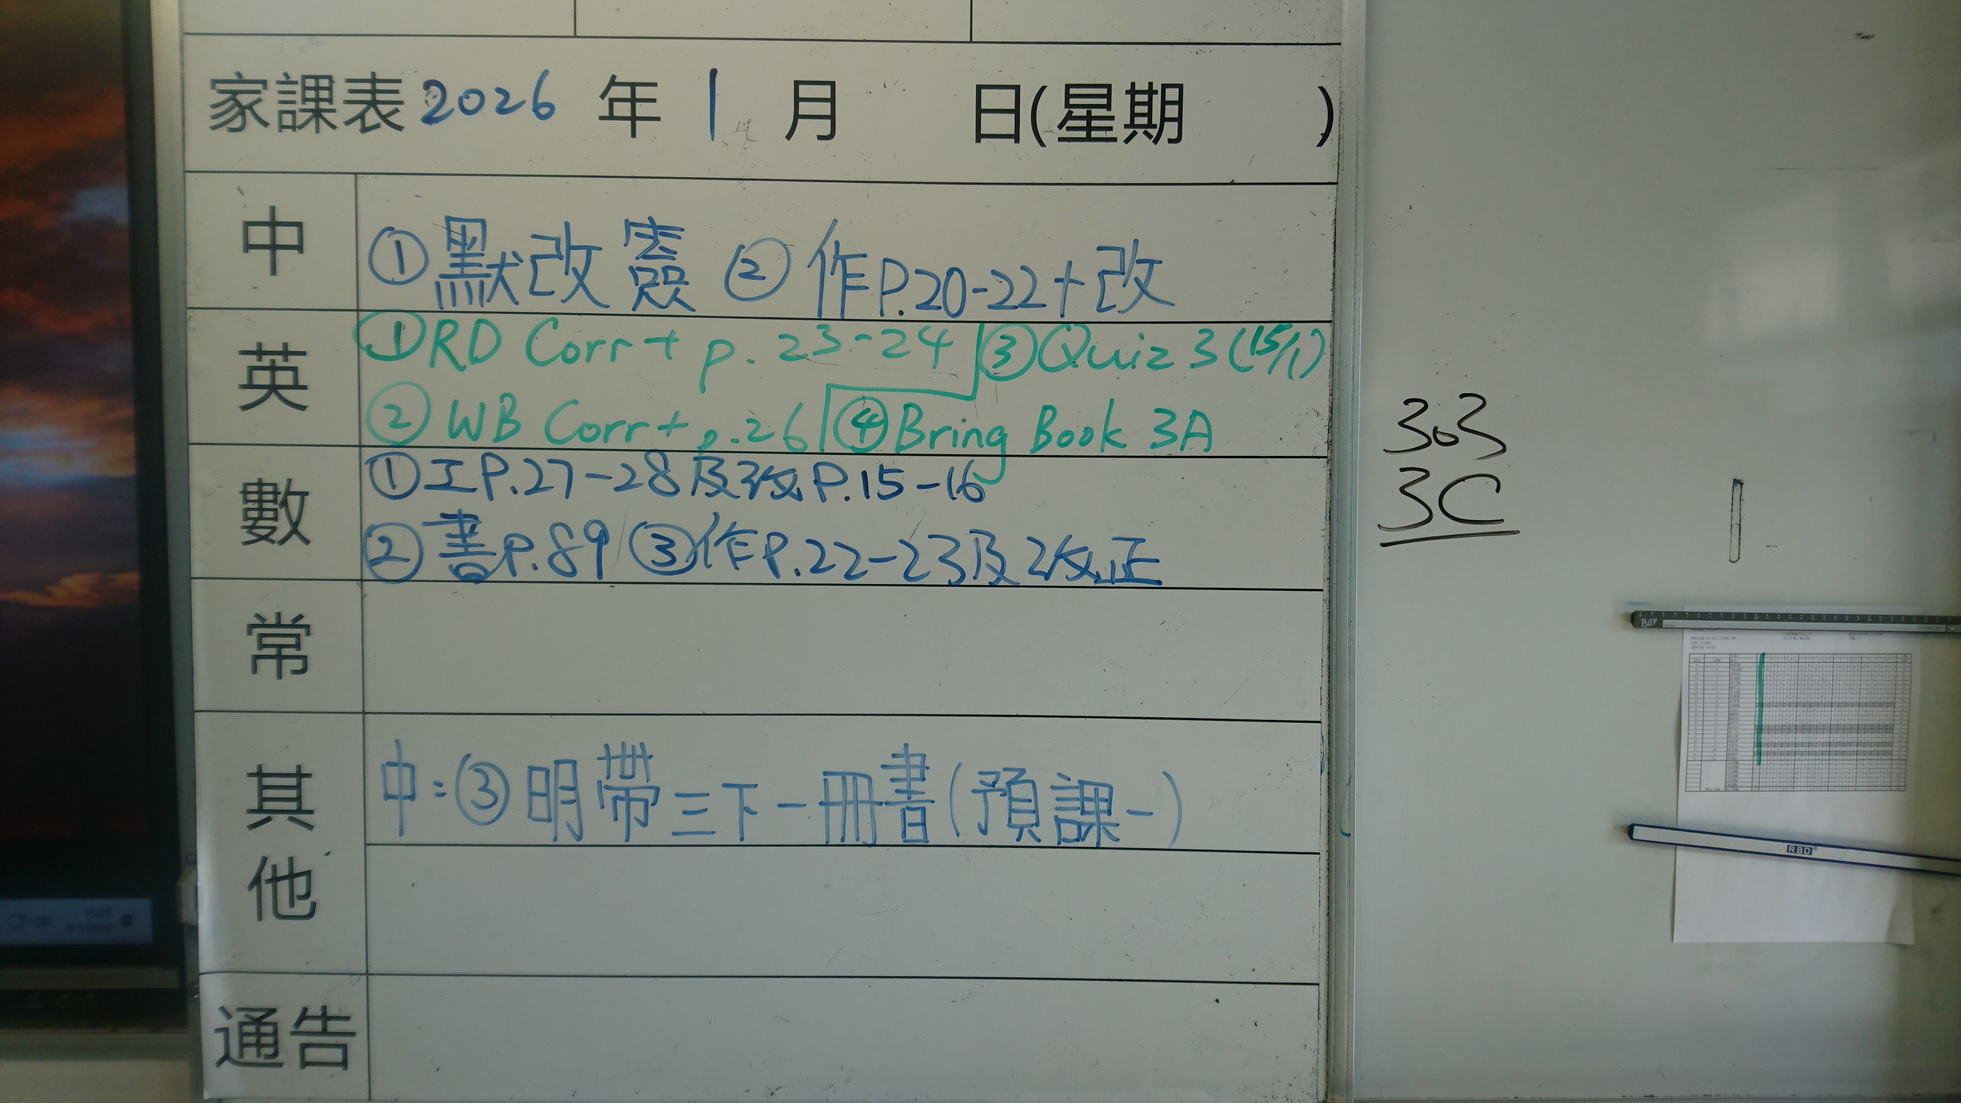 家課表 2026 年 1 月 日(星期 )
中 ①默改簽 ②作P.20-22+改
英 ①RD Corr+ p. 23-24 ③Quiz 3 (15/1)
②WB Corr+ p.26 ④Bring Book 3A
數 ①工P.27-28及改P.15-16
②書P.89 ③作P.22-23及改正
常
其他 中:③明帶三下一冊書(預課一)
通告
303
3C